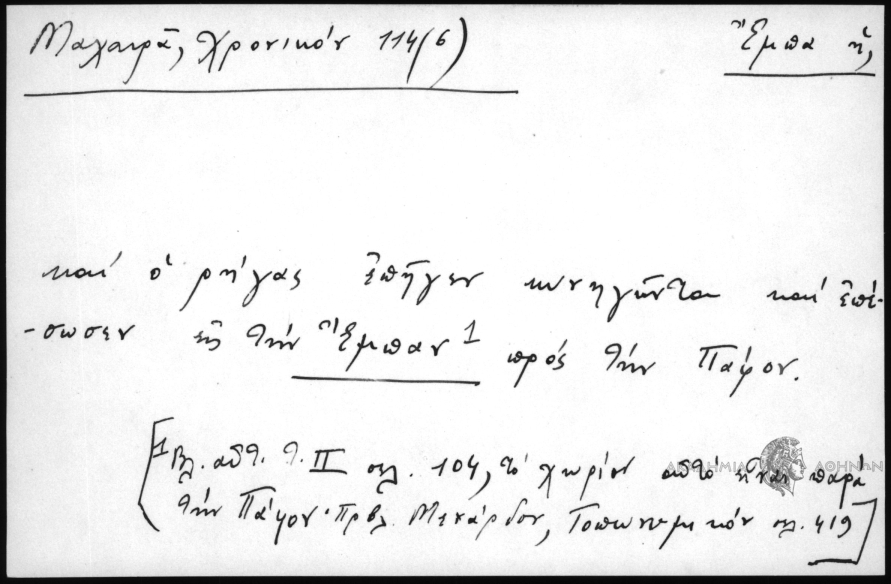 Μαχαιρᾶ, Χρονικόν 114(6)
Ἔμπα ἡ,
καὶ ὁ ρήγας ἐπῆγεν κυνηγῶντα καὶ ἐπέ-
-σωσεν εἰς τὴν Ἔμπαν¹ πρὸς τὴν Πάφον.
[¹ Βλ. αὐτ. τ. II σελ. 104, τὸ χωρίον αὐτὸ εἶναι παρὰ
τὴν Πάφον· Πρβλ. Μενάρδου, Τοπωνυμικόν σελ. 419]
ΑΚΑΔΗΜΙΑ ΑΘΗΝΩΝ